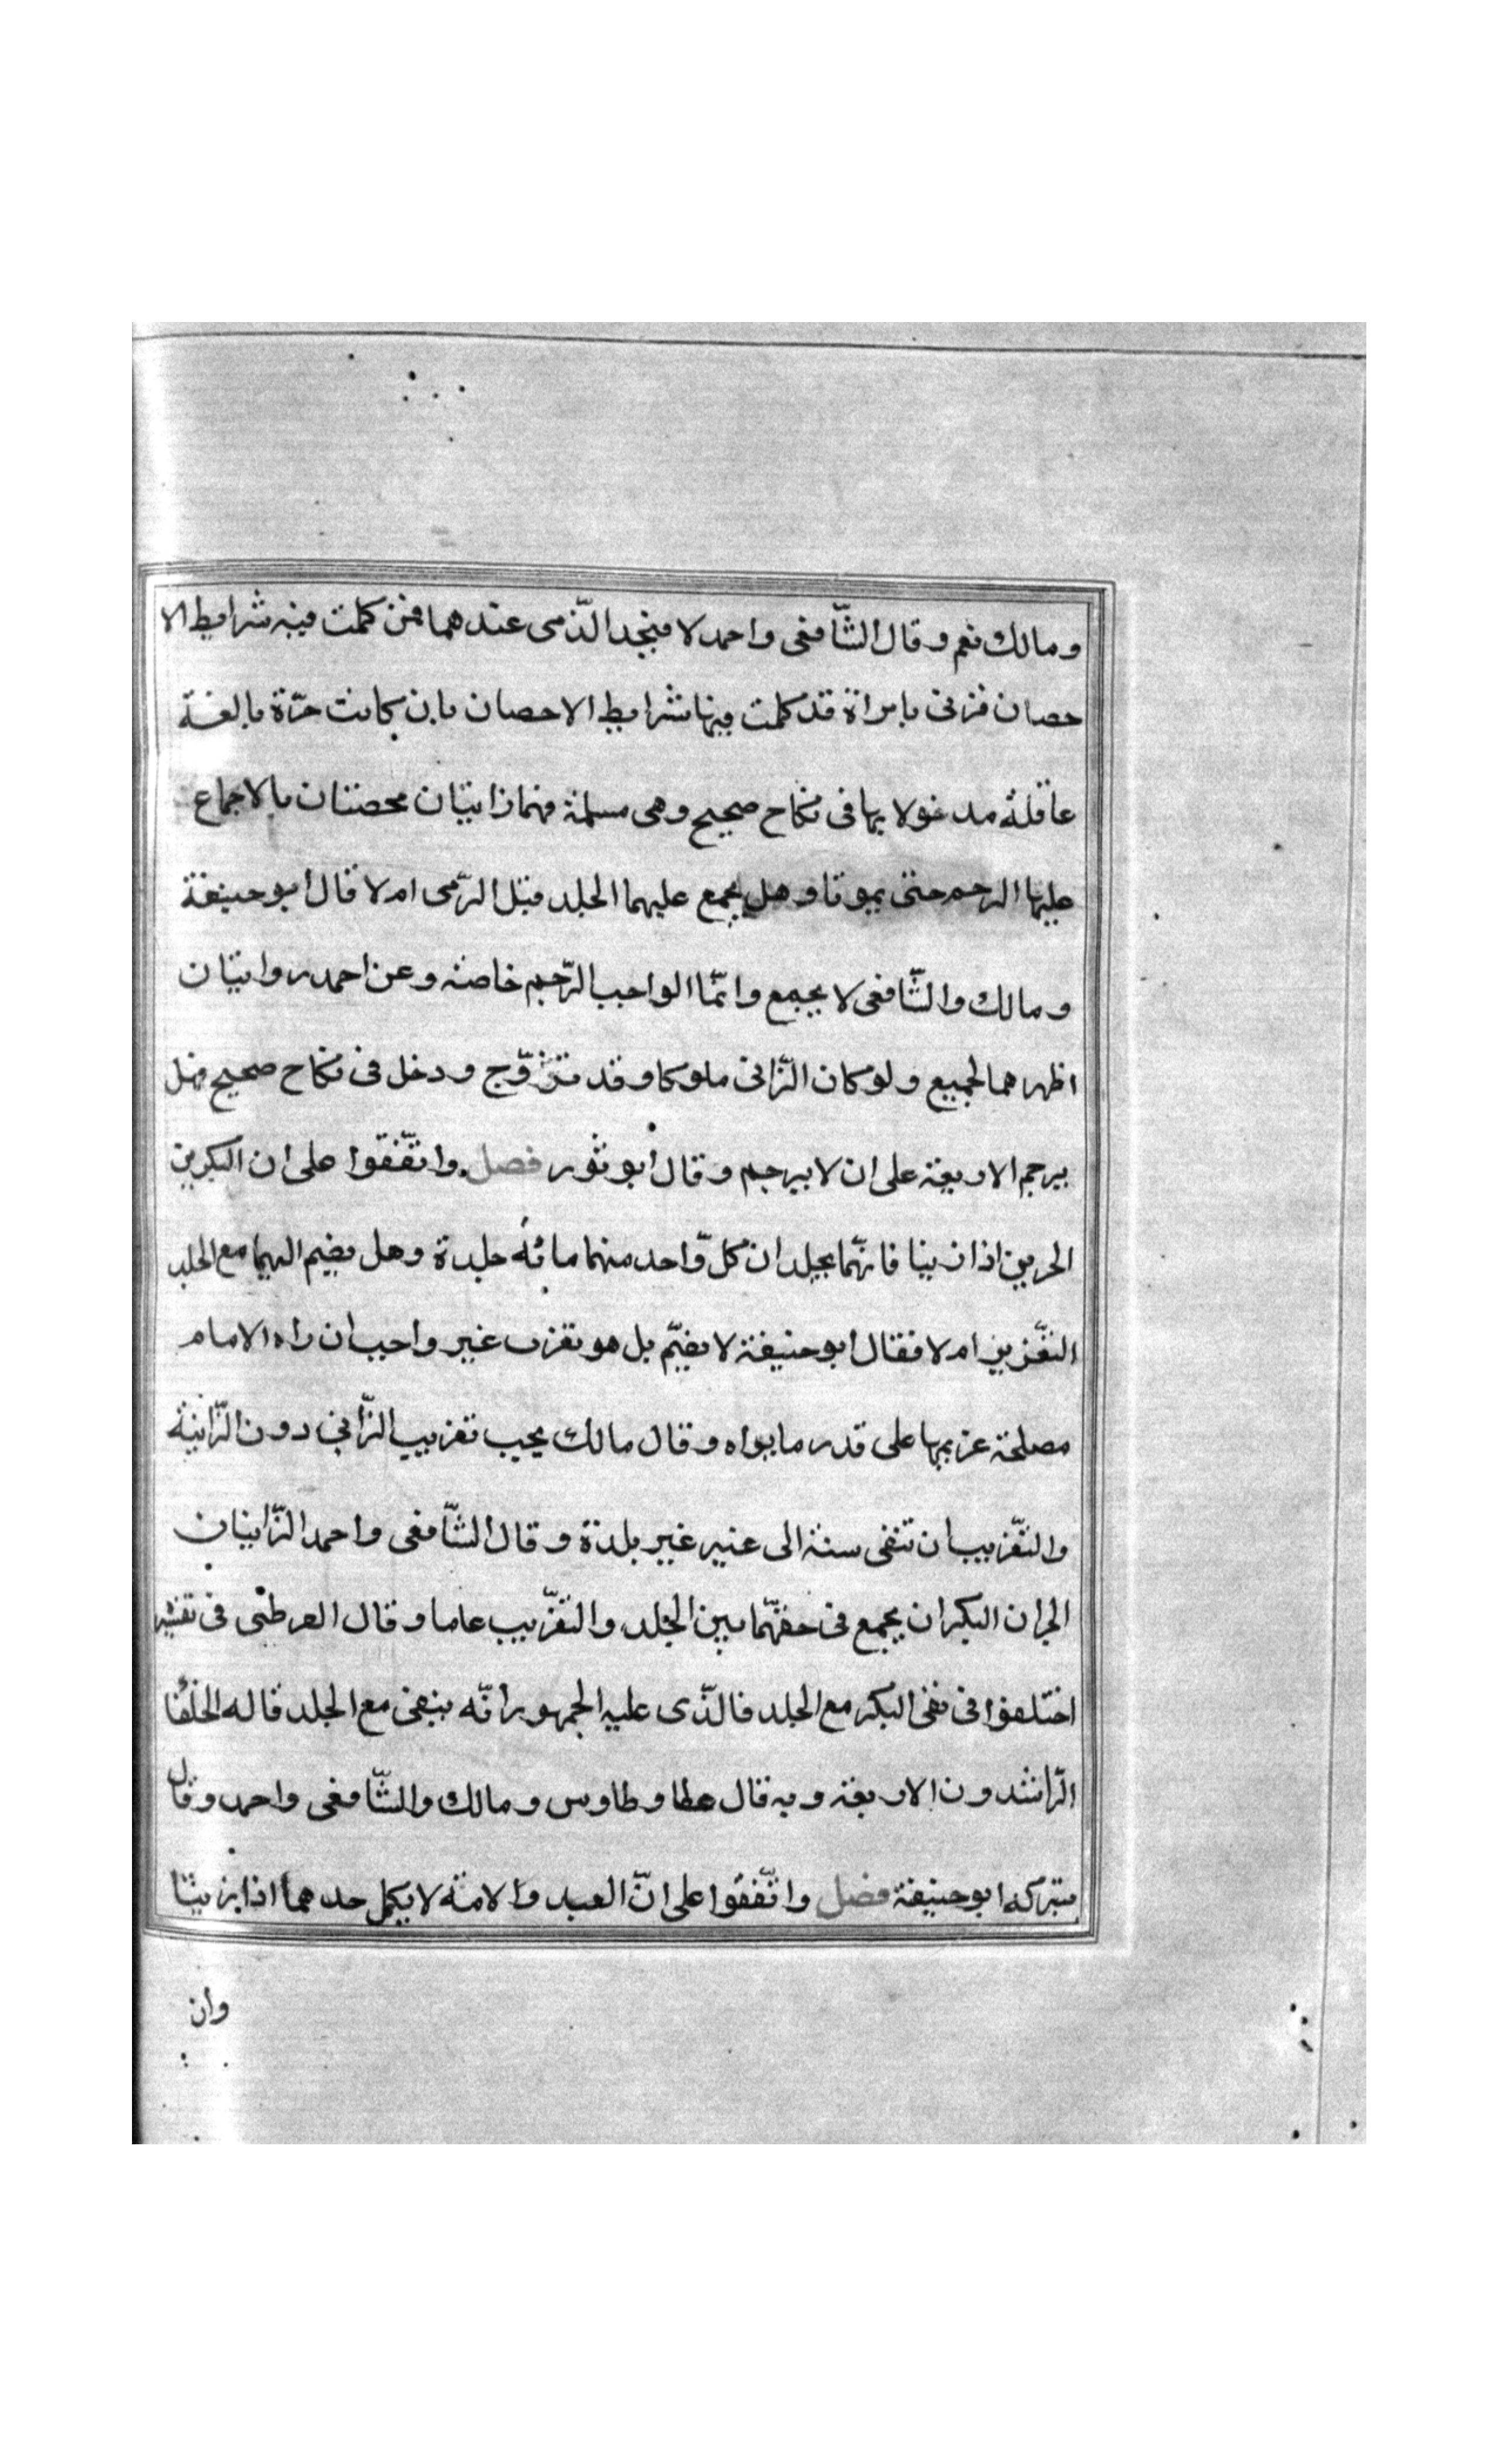 ومالك نعم وقال الشّافعى واحمد لا فيحد الذّمى عندهما فمن كملت فيه شرايط الا
حصان فزنى بامراة قد كملت فيها شرايط الاحصان بان كانت حرّة بالغة
عاقلة مدخولا بها فى نكاح صحيح وهى مسلمة فهما زانيتان محصنتان بالاجماع
عليهما الرجم حتى يموتا وهل يجمع عليهما الجلد قبل الرّمى ام لا قال ابو حنيفة
ومالك والشّافعى لا يجمع وانّما الواجب الرّجم خاصة وعن احمد روايتان
اظهرهما الجميع ولو كان الزّانى ملوكا وقد تزوّج ودخل فى نكاح صحيح فهل
يرجم الاربعة على ان لا يرجم وقال ابو ثور فصل واتّفقوا على ان البكرين
الحرين اذا زنيا فانّهما يجلدان كلّ واحد منهما مائة جلدة وهل يضم اليهما مع الجلد
التّغزيب ام لا فقال ابو حنيفة لا يضمّ بل هو تغزب غير واجب ان راه الامام
مصلحة غربهما على قدر ما يراه وقال مالك يجب تغزيب الزّاني دون الزّانية
والتّغزيب ان تنفى سنة الى غير غير بلدة وقال الشّافعى واحمد الزّانيان
الحران البكران يجمع فى حقهّما بين الجلد والتّغزيب عاما وقال القرطبى فى تفسير
اختلفوا فى نفى البكر مع الجلد فالّذى عليه الجمهور انّه ينفى مع الجلد قاله الخلفا
الرّاشدون الاربعة وبه قال عطا وطاوس ومالك والشّافعى واحمد وقال
بتركه ابو حنيفة فصل واتّفقوا على انّ العبد والامة لا يكمل حدهما اذا زنيتا
وان